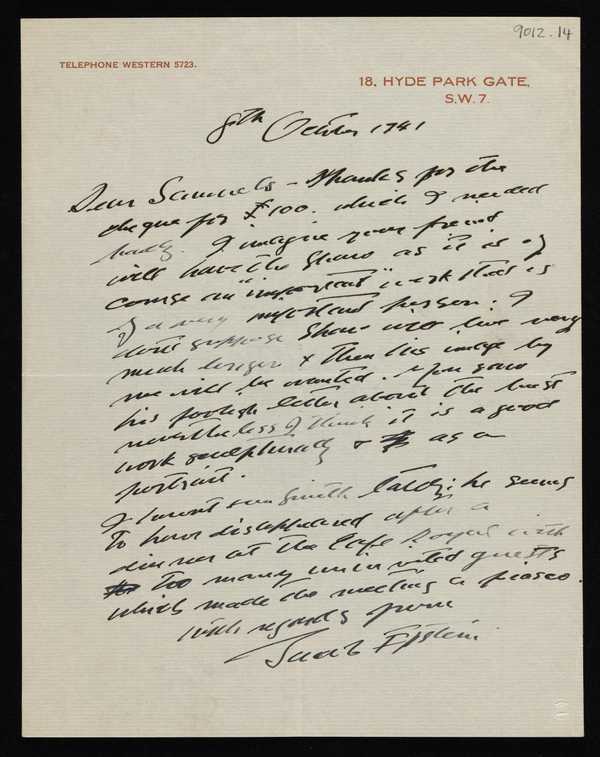 9012.14
TELEPHONE WESTERN 5723.
18, HYDE PARK GATE,
S.W.7.
8th October 1941
Dear Samuels – Thanks for the
cheque for £100. which I needed
badly. I imagine your friend
will have the Shaw as it is of
course an "important" work that is
of a very important person. I
dont suppose Shaw will live very
much longer & then his image by
me will be wanted. You saw
his foolish letter about the bust
nevertheless I think it is a good
work sculpturally & as a
portrait.
I havent seen Smith lately; he seems
to have disappeared after a
dinner at the Cafe Royal with
too many uninvited guests
which made the meeting a fiasco.
with regards from
Jacob Epstein